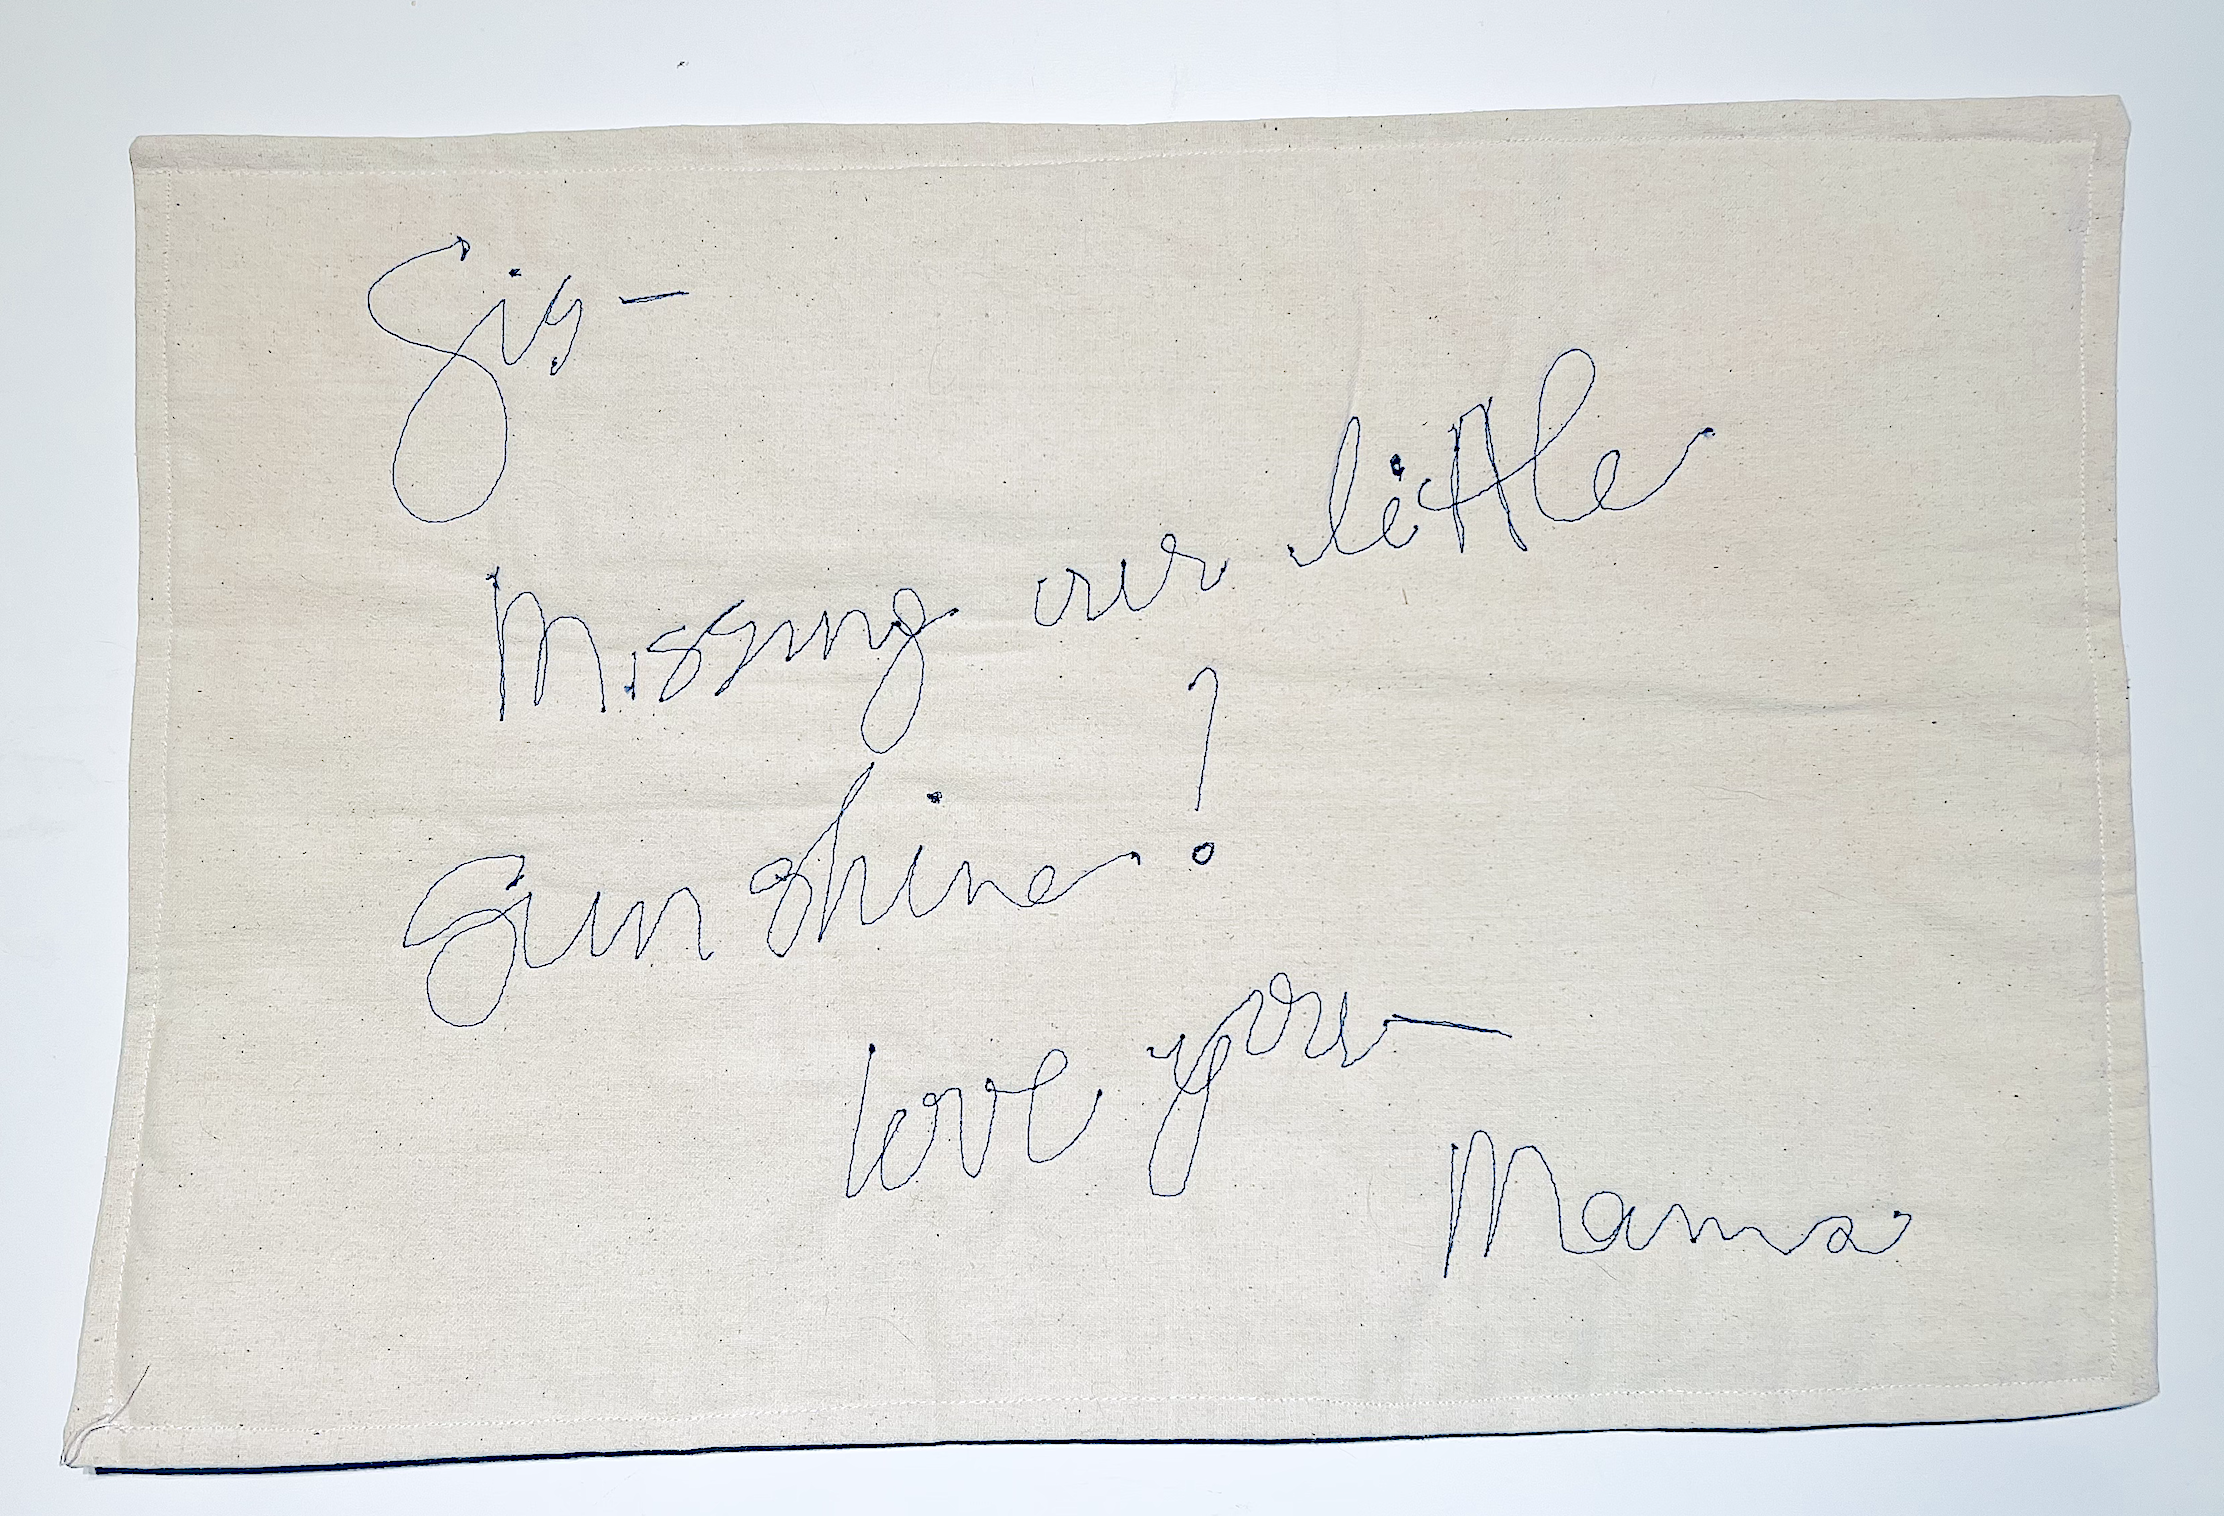 Sis –
Missing our little
Sunshine!
love you –
Mama